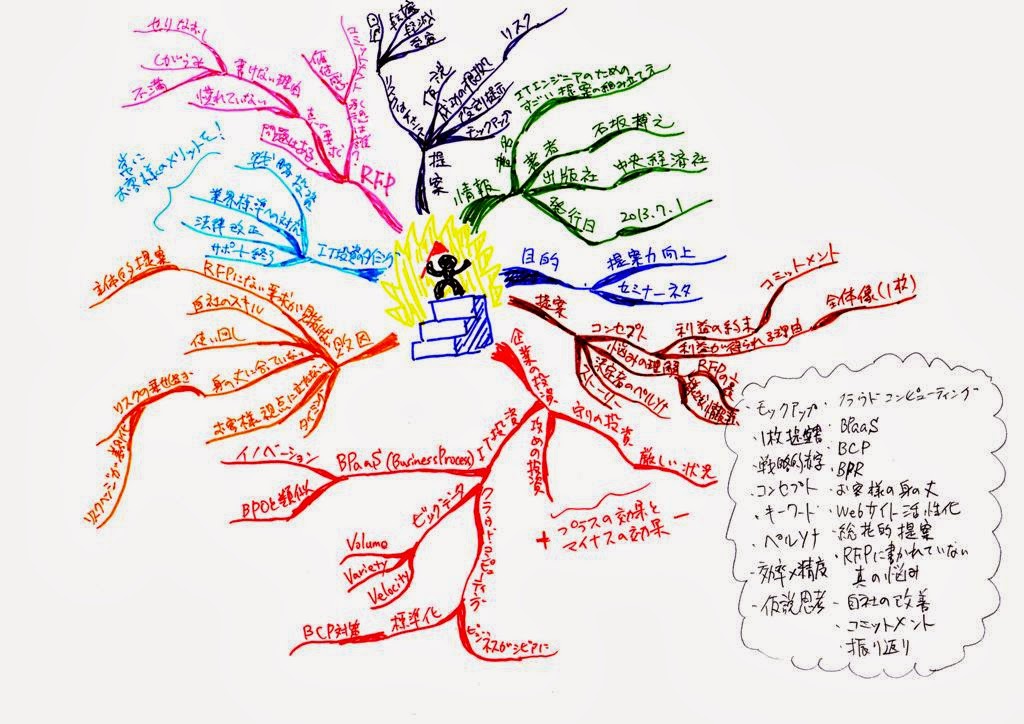 せりなおし
しがらみ
不満
書けない理由
慣れていない
真の要求
問題はある
価値感
コミットメント
RFP
回避
転嫁
軽減
受容
リスク
仮説
改割提示
モックアップ
提案
情報
書名
ITエンジニアのための
すごい提案の組み立て方
著者
石坂 博之
出版社
中央経済社
発行日
2013.7.1
目的
提案力向上
セミナーネタ
提案
コンセプト
利益の約束
コミットメント
利益が得られる理由
全体像(1枚)
悩みの理解
RFPの裏
決定者のペルソナ
ストーリー
常に
お客様のメリットを!
戦略投資
業界標準への対応
法律改正
サポート終了
IT投資のタイミング
敗因
RFPにない要求が見抜けない
立体的提案
自社のスキル
使い回し
身の丈に合っていない
リスクの乗せ過ぎ
リスクヘッジが表面化
お客様視点に立たない
タイミング
企業の投資
守りの投資
厳しい状況
攻めの投資
プラスの効果と
マイナスの効果
+
−
IT投資
BPaaS(BusinessProcess)
イノベーション
BPOと類似
ビックデータ
Volume
Variety
Velocity
クラウドコンピューティング
標準化
BCP対策
ビジネスがシビアに
・モックアップ
・1枚提案書
・戦略的赤字
・コンセプト
・キーワード
・ペルソナ
・効率×精度
・仮説思考
・クラウドコンピューティング
・BPaaS
・BCP
・BPR
・お客様の身の丈
・Webサイト活性化
・総花的提案
・RFPに書かれていない
真の悩み
・自社の改善
・コミットメント
・振り返り